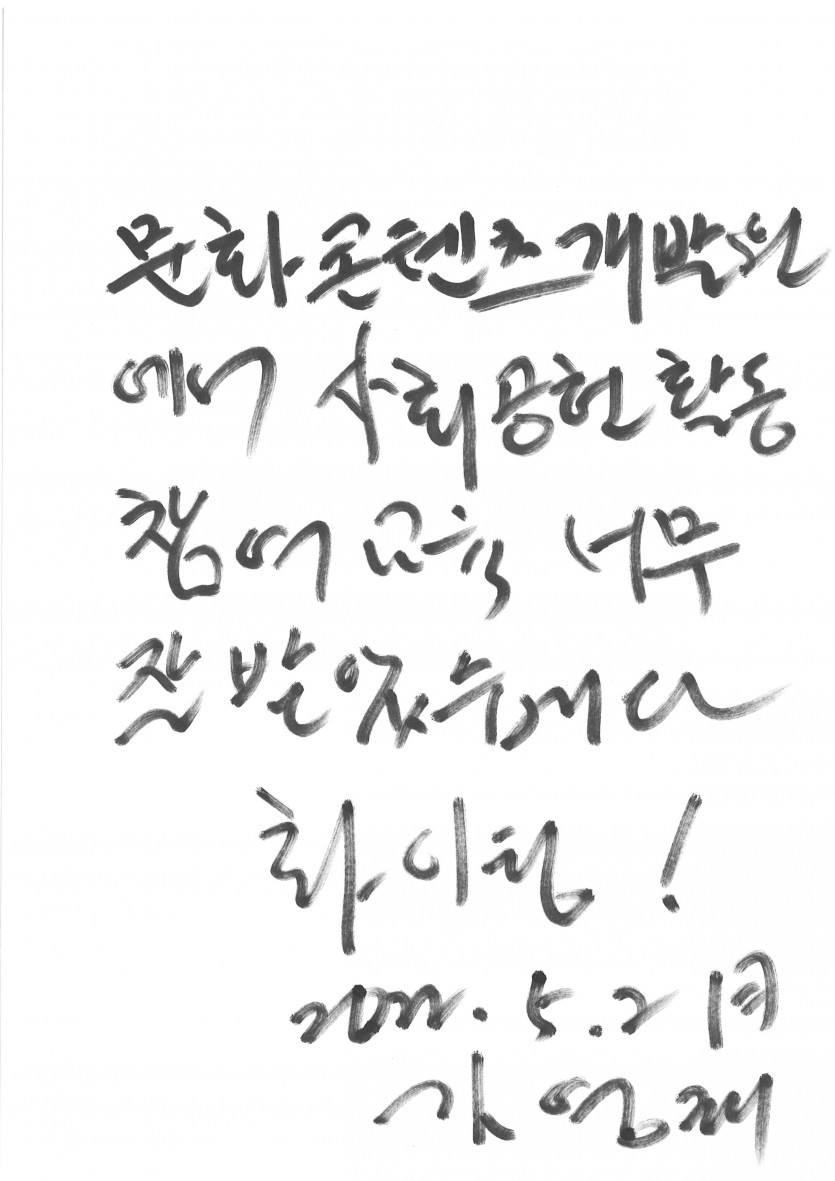 문화콘텐츠개발원
에서 사회공헌활동
참여 교육 너무
잘 받았습니다
화이팅!
2022. 5. 2 月